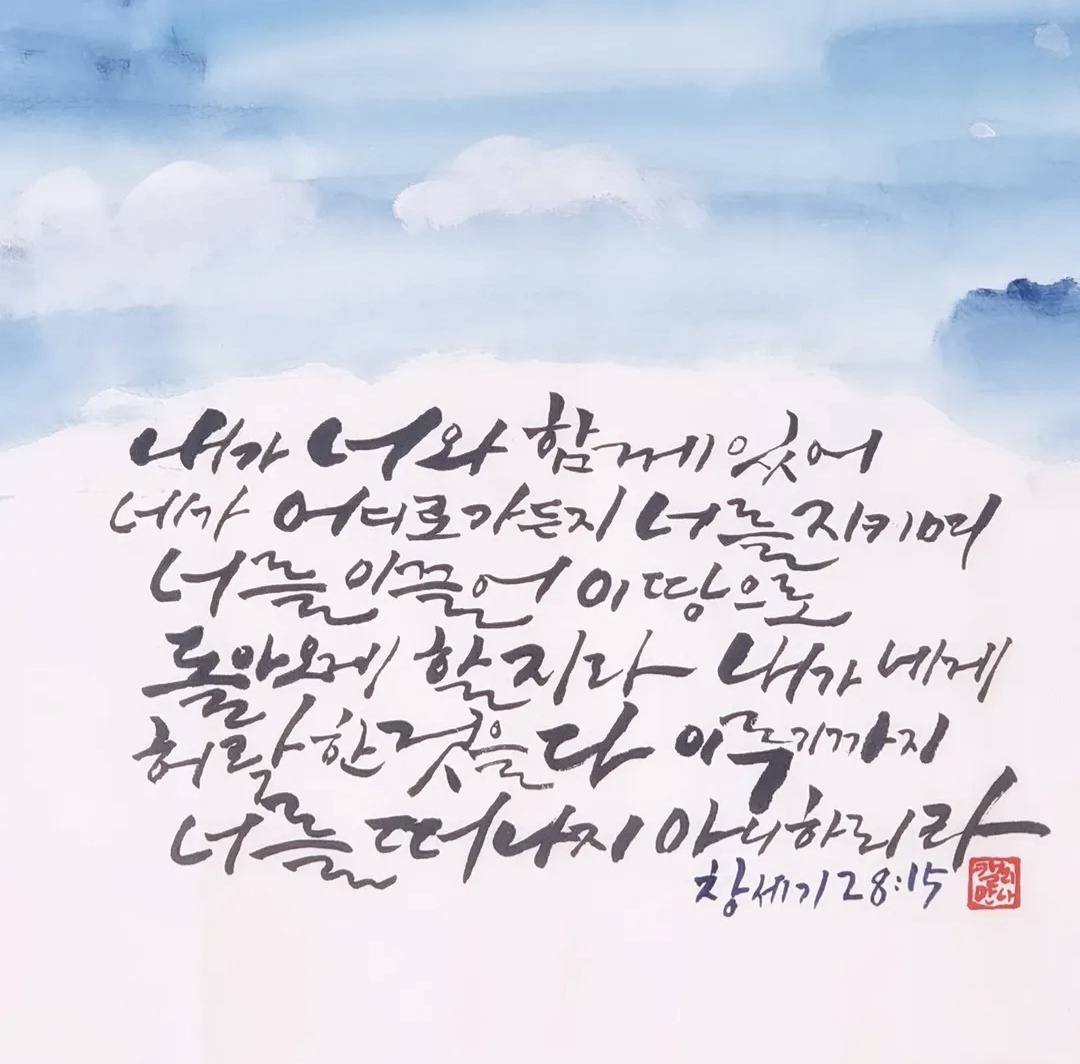 내가 너와 함께 있어
네가 어디로 가든지 너를 지키며
너를 이끌어 이 땅으로
돌아오게 할지라 내가 네게
허락한 것을 다 이루기까지
너를 떠나지 아니하리라
창세기 28:15